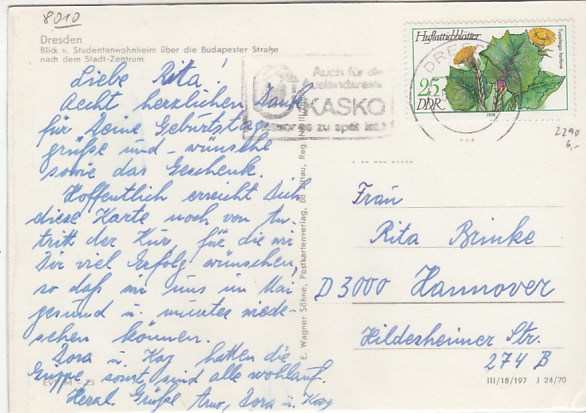 8010
Dresden
Blick v. Studentenwohnheim über die Budapester Straße
nach dem Stadt-Zentrum
Liebe Rita!
Recht herzlichen Dank
für Deine Geburtstags-
grüße und -wünsche
sowie das Geschenk.
Hoffentlich erreicht Dich
diese Karte noch vor An-
tritt der Kur, für die wir
Dir viel Erfolg wünschen,
so daß wir uns im Mai
gesund u. munter wieder-
sehen können.
Dora u. Kay hatten die
Grippe, sonst sind alle wohlauf.
Herzl. Grüße Arno, Dora u. Kay
Auch für die
Auslandsreise
KASKO
bevor es zu spät ist!
DRE
Huflattichblätter
Tussilago farfara
25
DDR
1978
2290
6,-
Frau
Rita Brinke
D 3000 Hannover
Hildesheimer Str.
274 B
E. Wagner Söhne, Postkartenverlag, 88 Zittau, Reg.
III/18/197 J 24/70